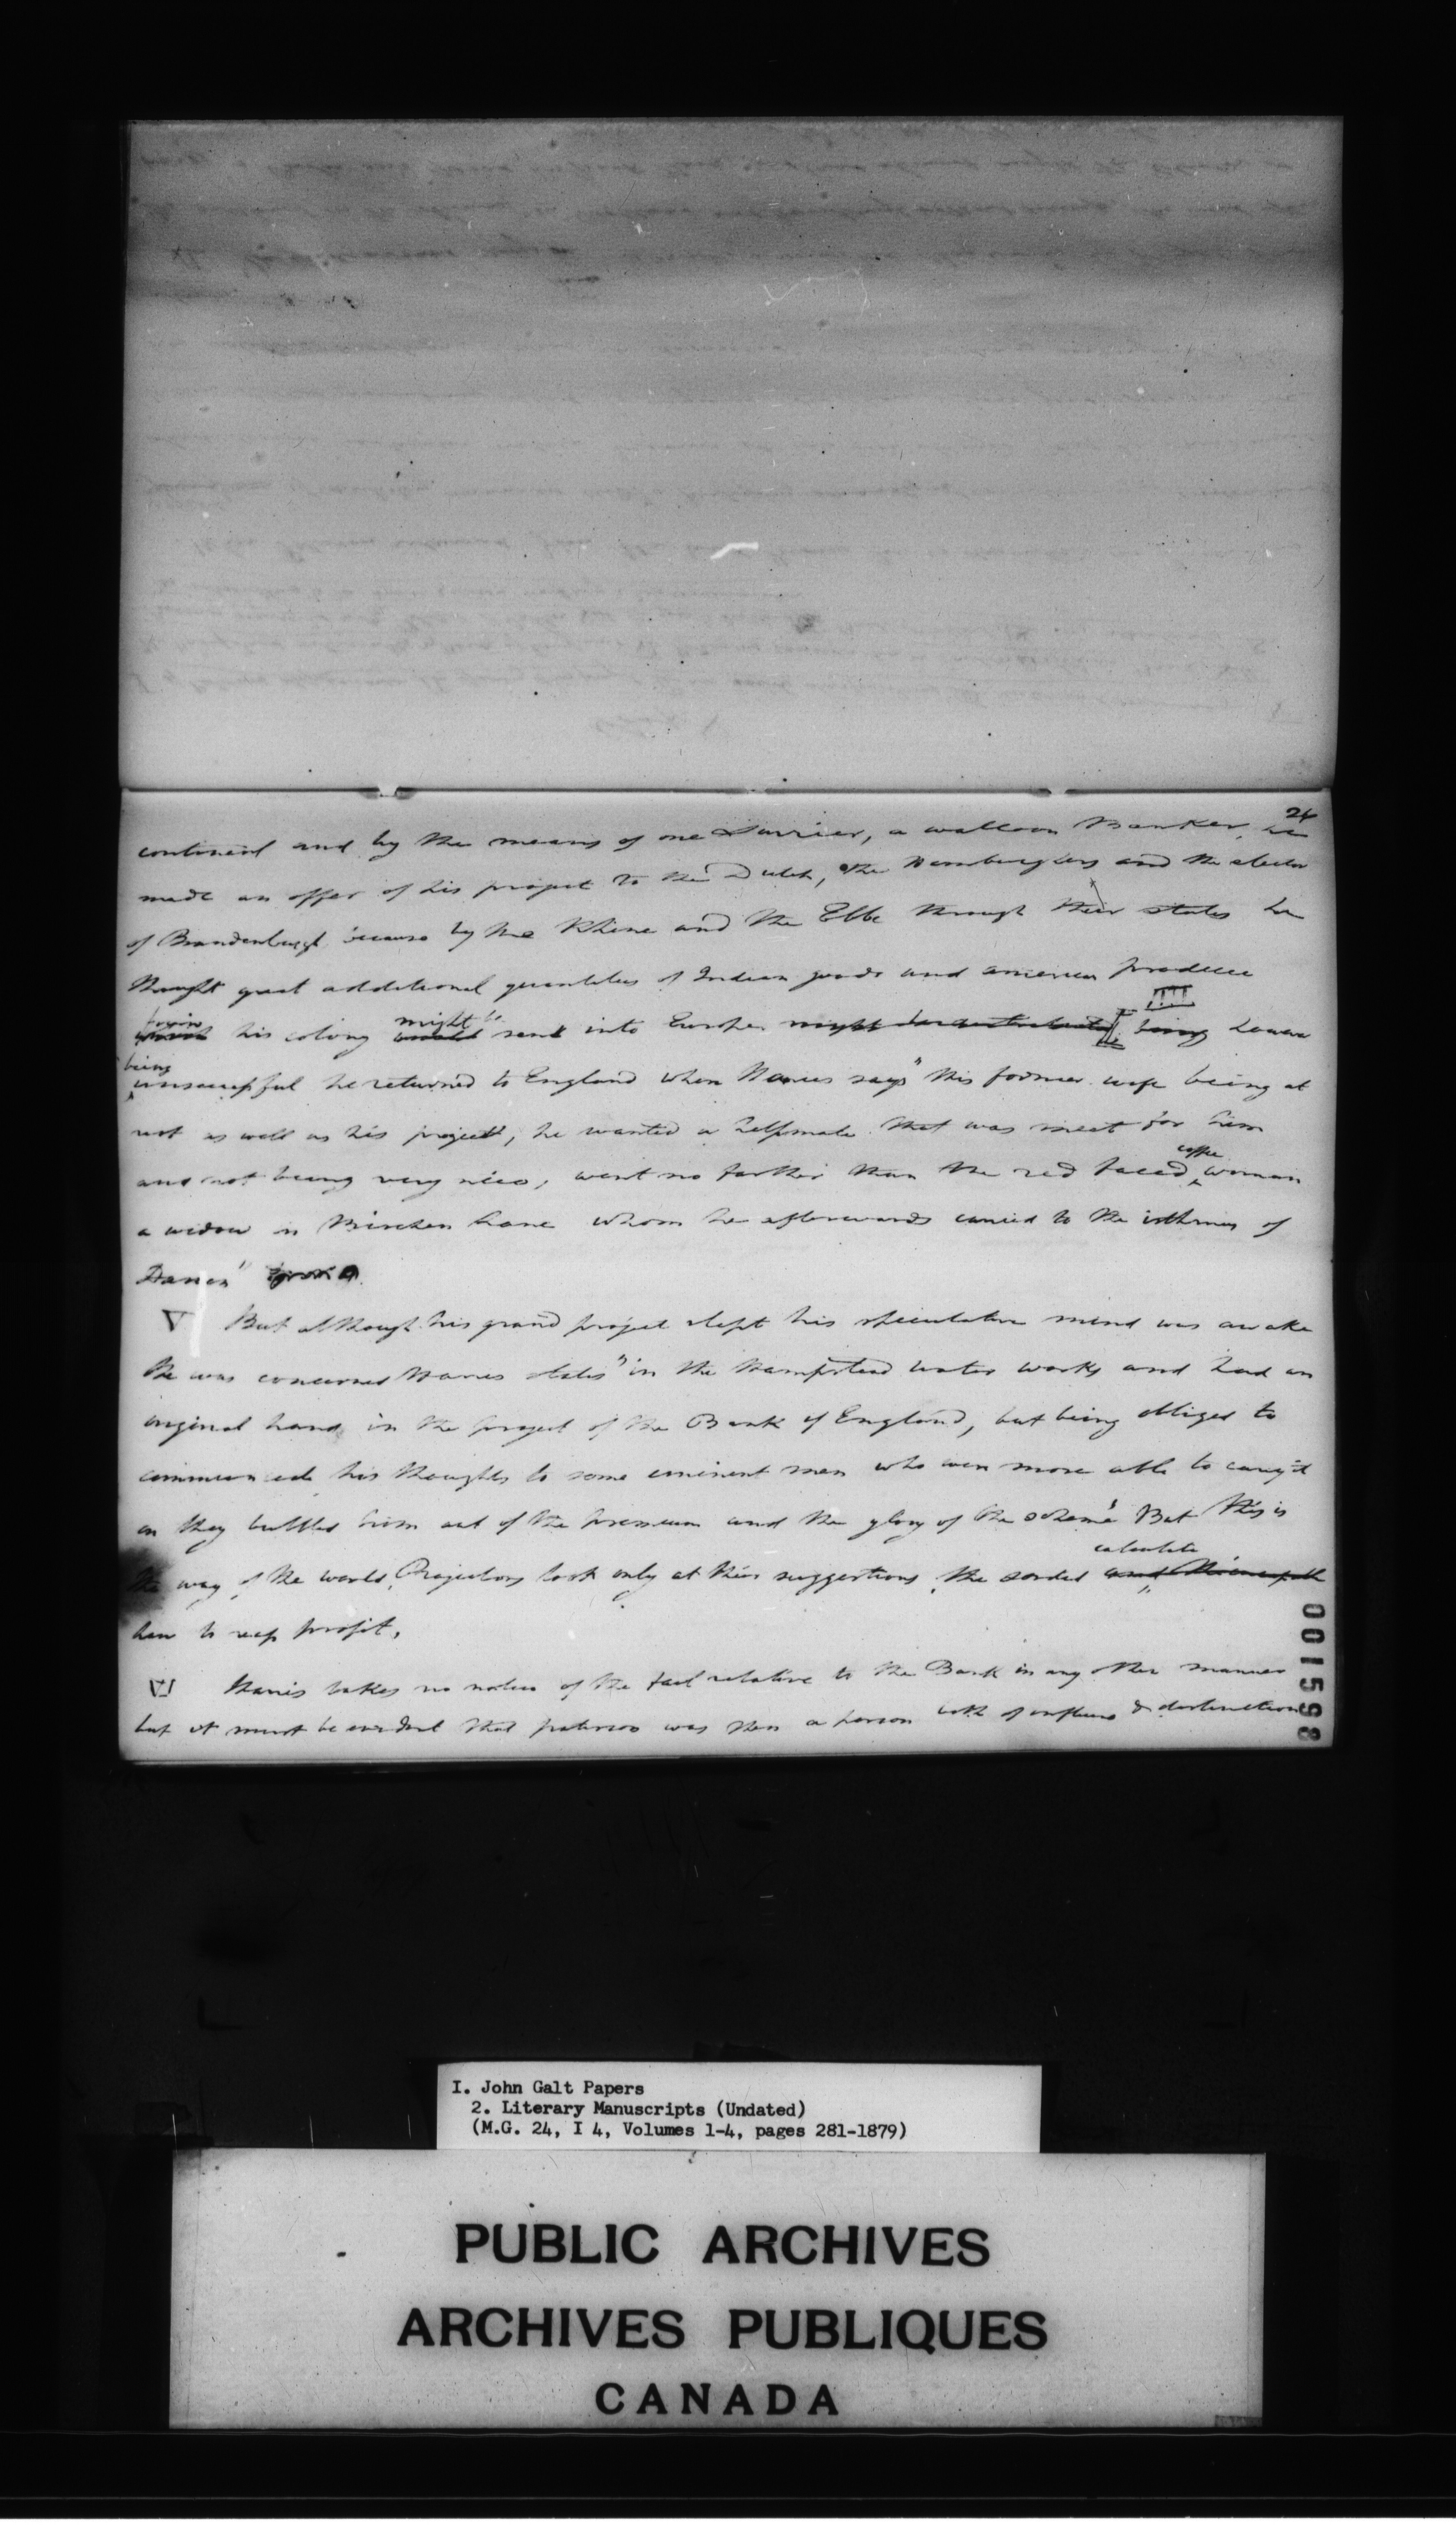 24
continent and by the means of one Surrier, a walloon Banker, he
made an offer of his project to the Dutch, the Hamburghers and the elector
of Brandenburgh because by the Rhine and the Elbe through their states he
thought great additional quantities of Indian goods and american produce
from his colony might send into Europe. being however
being
unsuccessful he returned to England when Harris says "his former wife being at
rest as well as his project, he wanted a helpmate that was meet for him
and not being very nice, went no farther than the red faced coffee woman
a widow in Birchen Lane whom he afterwards carried to the isthmus of
Darien"
V But although his grand project slept his speculative mind was awake
He was concerned Harris states "in the Hampstead water works and had an
original hand in the project of the Bank of England, but being obliged to
communicate his thoughts to some eminent men who were more able to carry it
on they bubbled him out of the premium and the glory of the scheme" But this is
the way of the world, Projectors look only at their suggestions, the sordid calculate
how to reap profit.
VI Harris takes no notice of the fact relative to the Bank in any other manner
but it must be evident that paterson was then a person both of influence & distinction
001598
I. John Galt Papers
2. Literary Manuscripts (Undated)
(M.G. 24, I 4, Volumes 1-4, pages 281-1879)
PUBLIC ARCHIVES
ARCHIVES PUBLIQUES
CANADA